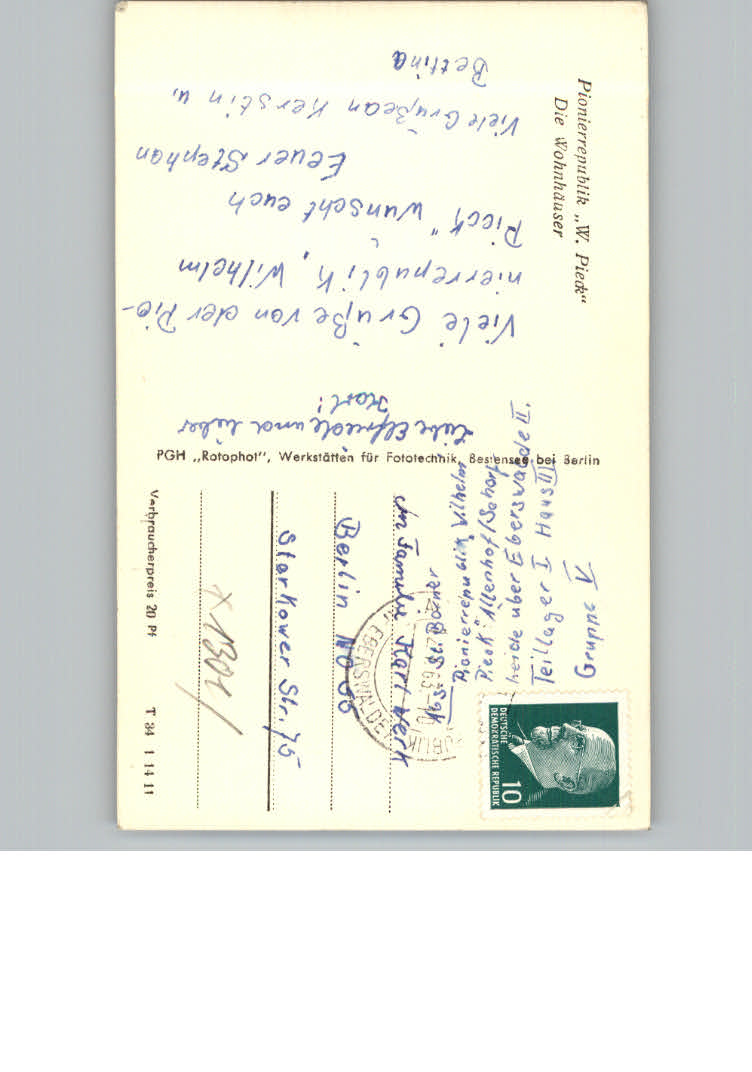 Pionierrepublik „W. Pieck“
Die Wohnhäuser
Liebe Elfriede und lieber
Karl!
Viele Grüße von der Pio-
nierrepublik „Wilhelm
Pieck" wünscht euch
Eeuer Stephan
Viele Grüßean Kerstin u.
Bettina
PGH „Rotophot“, Werkstätten für Fototechnik, Bestensee bei Berlin
Abs: St.
Pionierrepublik Wilhelm
Pieck" Altenhof/Schorf
heide über Eberswalde II.
Teillager I Haus III
Gruppe V
DEUTSCHE
DEMOKRATISCHE REPUBLIK
10
EBERSWALDE
An Familie Karl Werk
Berlin NO 55
Storkower Str. 75
Verbraucherpreis 20 Pf
T 84 1 14 11